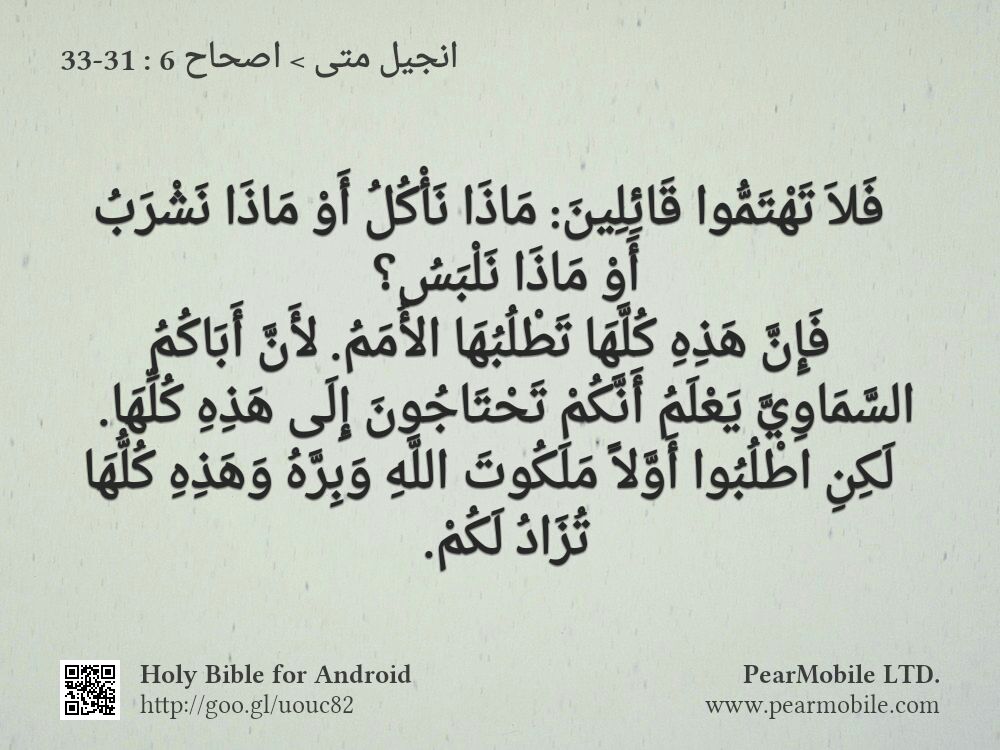 انجيل متى > اصحاح 6 : 31-33
فَلاَ تَهْتَمُّوا قَائِلِينَ: مَاذَا نَأْكُلُ أَوْ مَاذَا نَشْرَبُ
أَوْ مَاذَا نَلْبَسُ؟
فَإِنَّ هَذِهِ كُلَّهَا تَطْلُبُهَا الأُمَمُ. لأَنَّ أَبَاكُمُ
السَّمَاوِيَّ يَعْلَمُ أَنَّكُمْ تَحْتَاجُونَ إِلَى هَذِهِ كُلِّهَا.
لَكِنِ اطْلُبُوا أَوَّلاً مَلَكُوتَ اللَّهِ وَبِرَّهُ وَهَذِهِ كُلُّهَا
تُزَادُ لَكُمْ.
Holy Bible for Android
http://goo.gl/uouc82
PearMobile LTD.
www.pearmobile.com